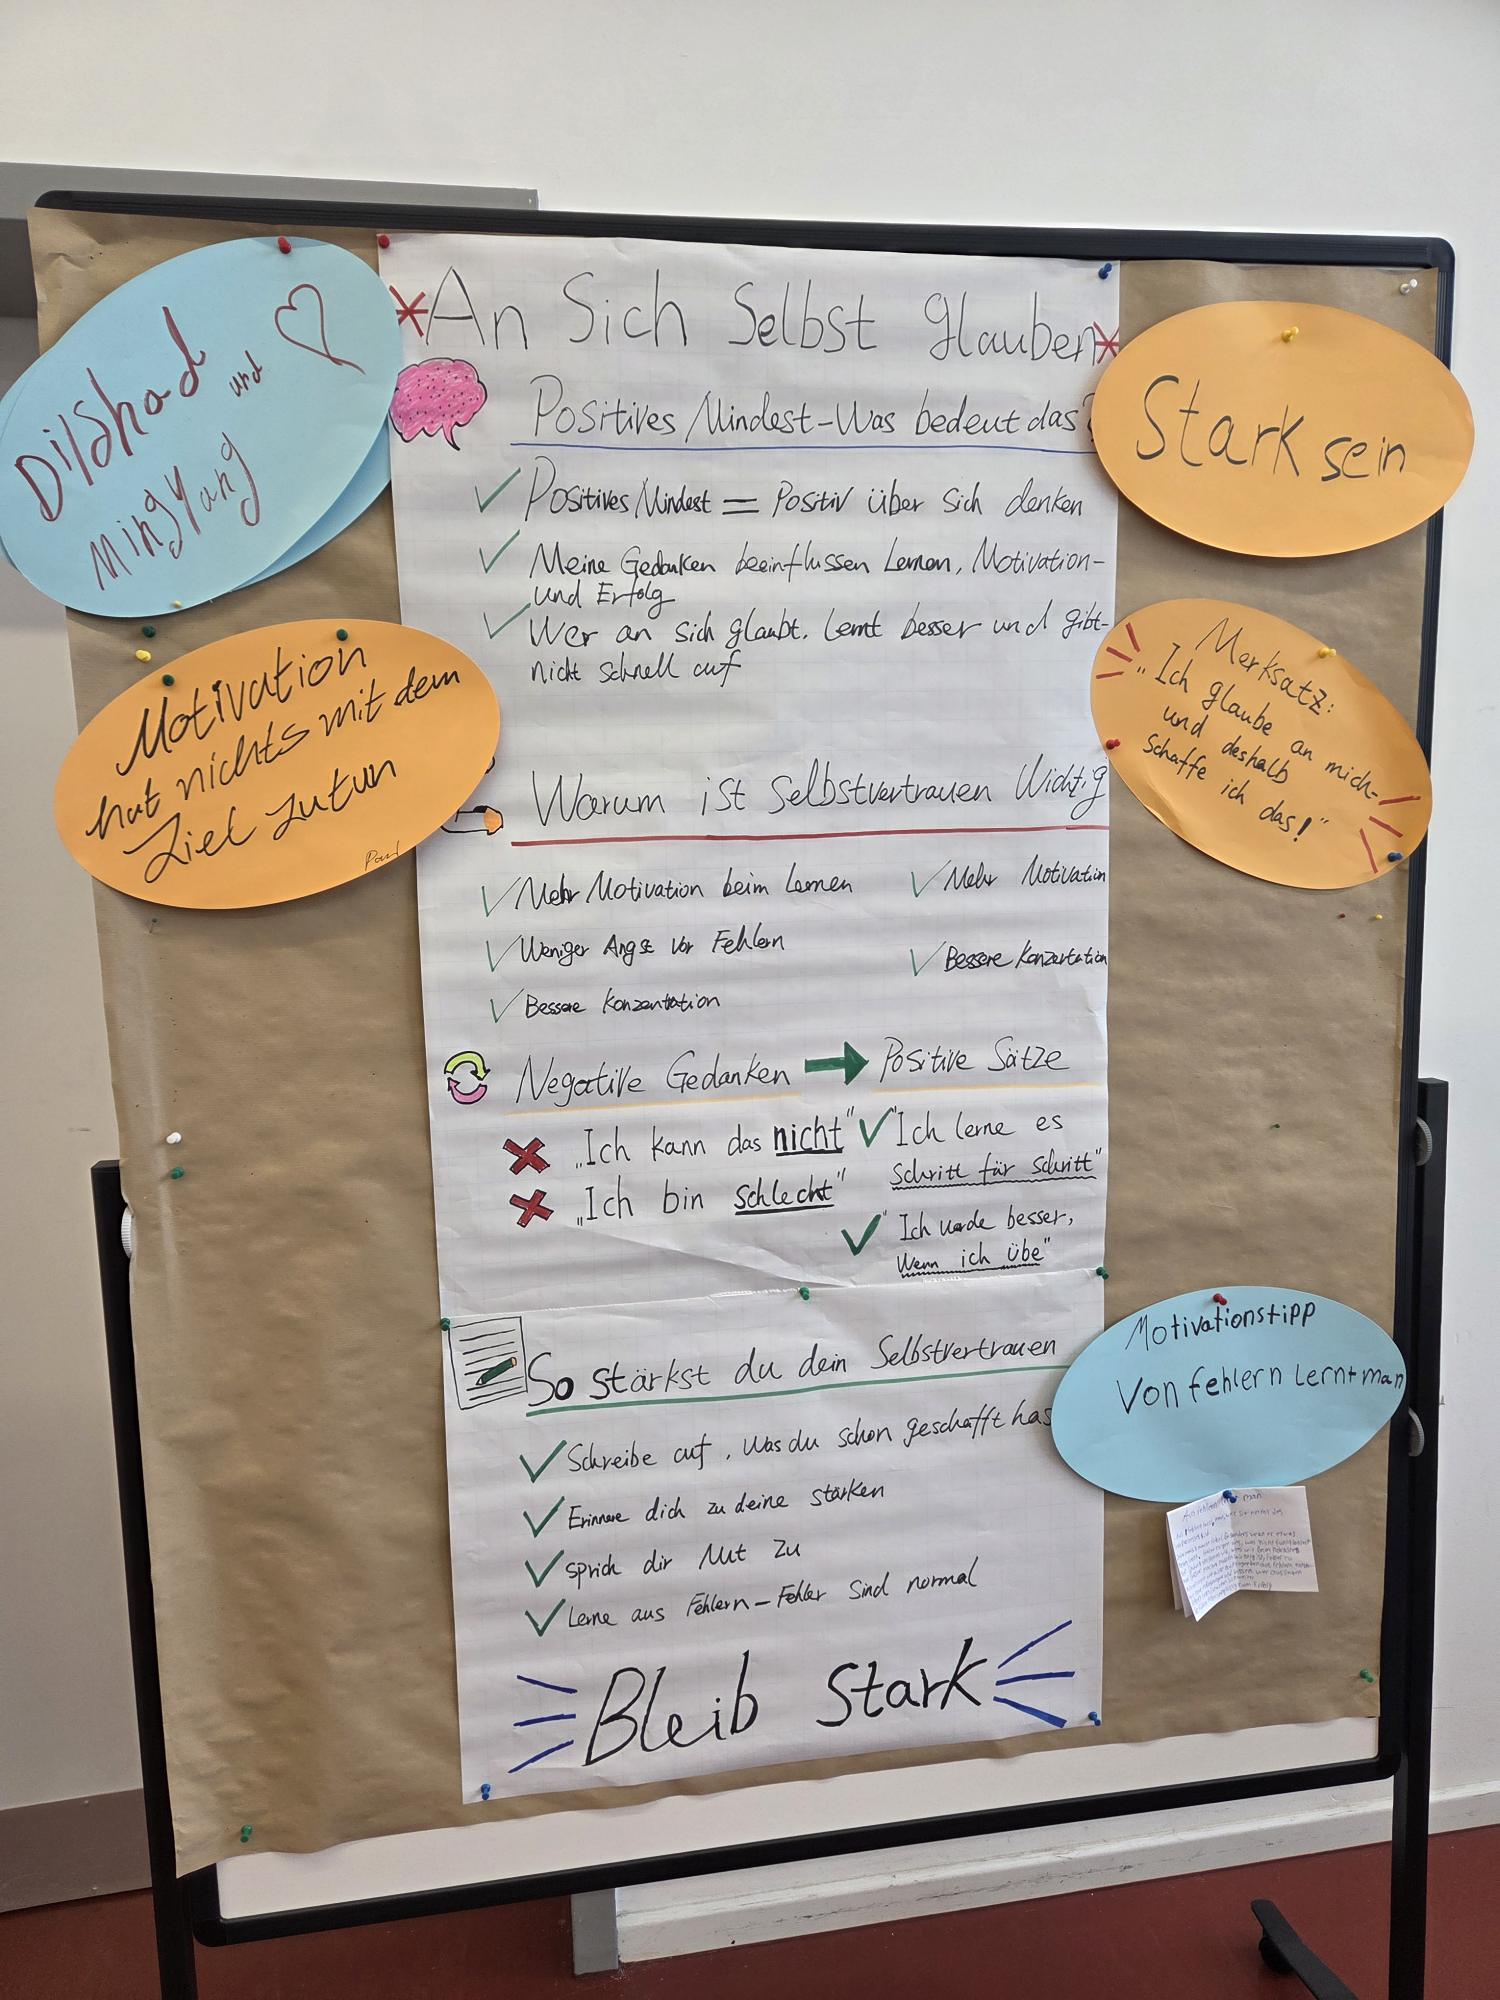 An Sich Selbst glauben
Positives Mindest-Was bedeut das?
Positives Mindest = Positiv über sich denken
Meine Gedanken beeinflussen Lernen, Motivation-
und Erfolg
Wer an sich glaubt, lernt besser und gibt-
nicht schnell auf
Warum ist Selbstvertrauen Wichtig
Mehr Motivation beim Lernen
Weniger Angst vor Fehlern
Bessere Konzentration
Mehr Motivation
Bessere Konzertation
Negative Gedanken
Positive Sätze
„Ich kann das nicht"
„Ich bin schlecht"
"Ich lerne es
Schritt für Schritt"
"Ich werde besser,
Wenn ich übe"
So stärkst du dein Selbstvertrauen
Schreibe auf, Was du schon geschafft has
Erinnere dich zu deine stärken
sprich dir Mut zu
Lerne aus Fehlern-Fehler sind normal
Bleib stark
Dilshad
und
MingYang
Motivation
hat nichts mit dem
Ziel zutun
Paul
Stark sein
Merksatz:
„Ich glaube an mich-
und deshalb
Schaffe ich das!"
Motivationstipp
Von fehlern Lernt man